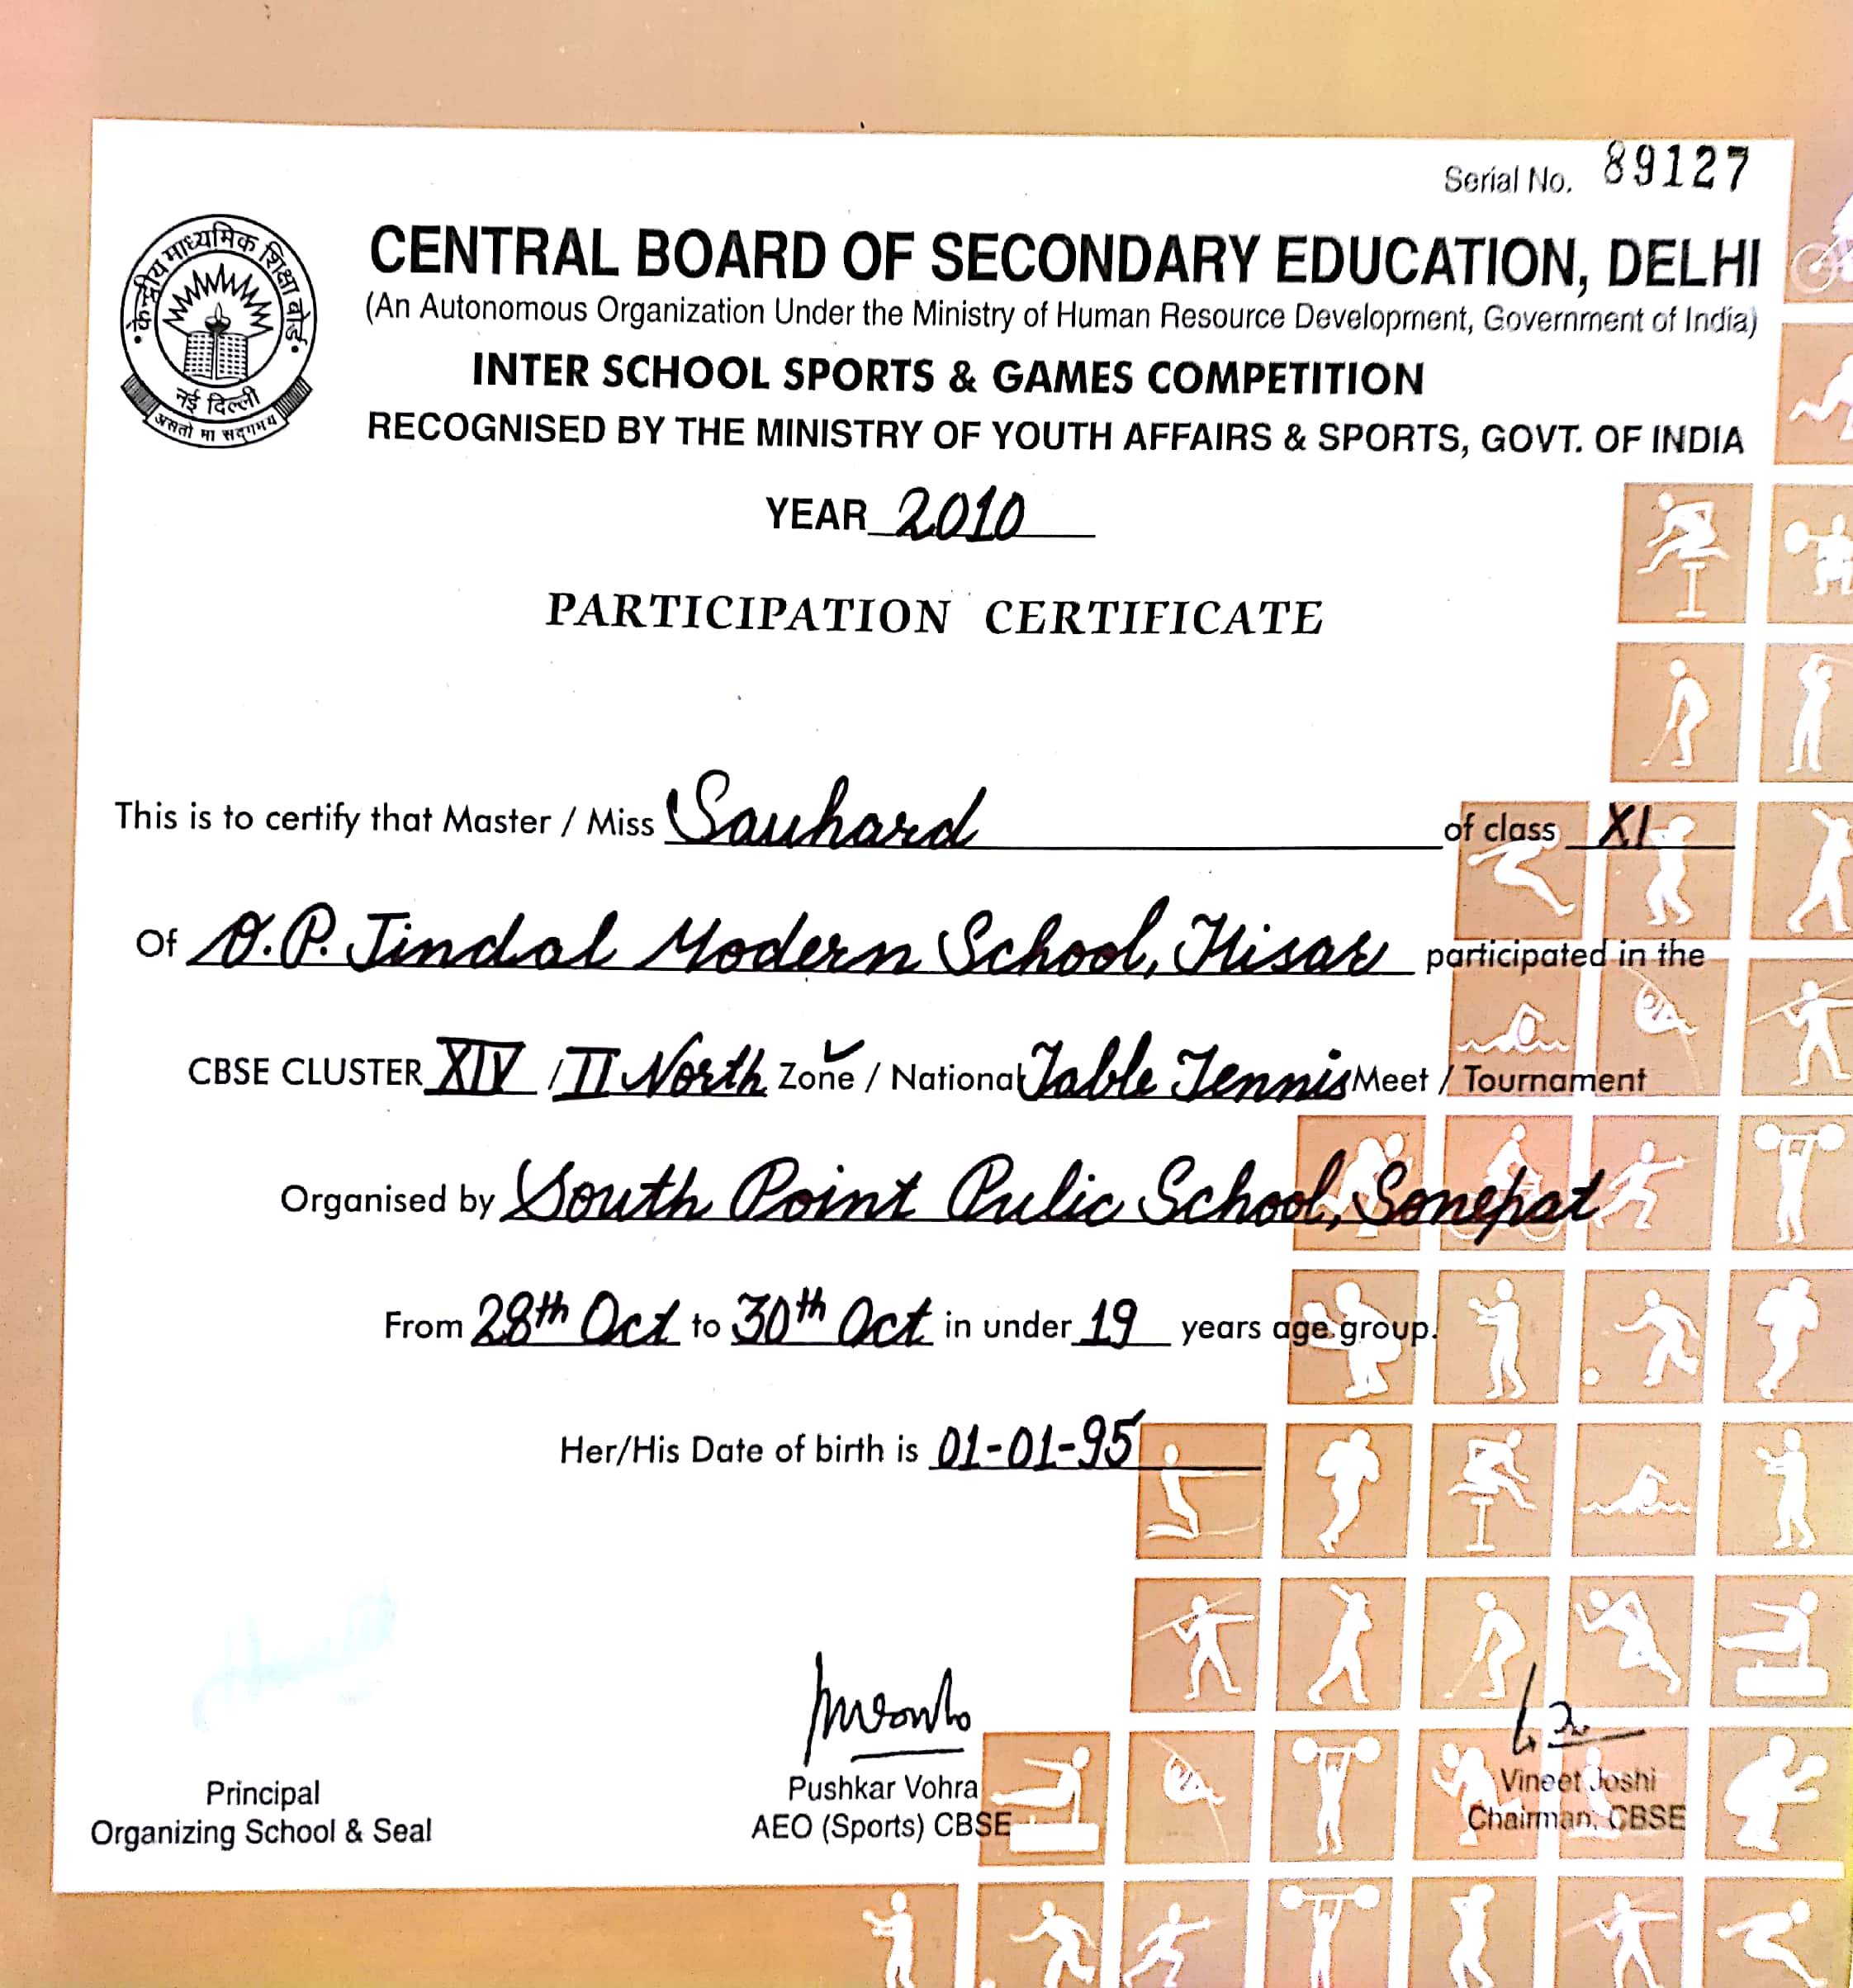 Serial No. 89127
केन्द्रीय माध्यमिक शिक्षा बोर्ड
नई दिल्ली
असतो मा सद्गमय
CENTRAL BOARD OF SECONDARY EDUCATION, DELHI
(An Autonomous Organization Under the Ministry of Human Resource Development, Government of India)
INTER SCHOOL SPORTS & GAMES COMPETITION
RECOGNISED BY THE MINISTRY OF YOUTH AFFAIRS & SPORTS, GOVT. OF INDIA
YEAR 2010
PARTICIPATION CERTIFICATE
This is to certify that Master / Miss Sauhard of class XI
Of O.P. Jindal Modern School, Hisar participated in the
CBSE CLUSTER XIV / II North Zone / National Table Tennis Meet / Tournament
Organised by South Point Pulic School, Sonepat
From 28th Oct to 30th Oct in under 19 years age group.
Her/His Date of birth is 01-01-95
Principal
Organizing School & Seal
Pushkar Vohra
AEO (Sports) CBSE
Vineet Joshi
Chairman, CBSE